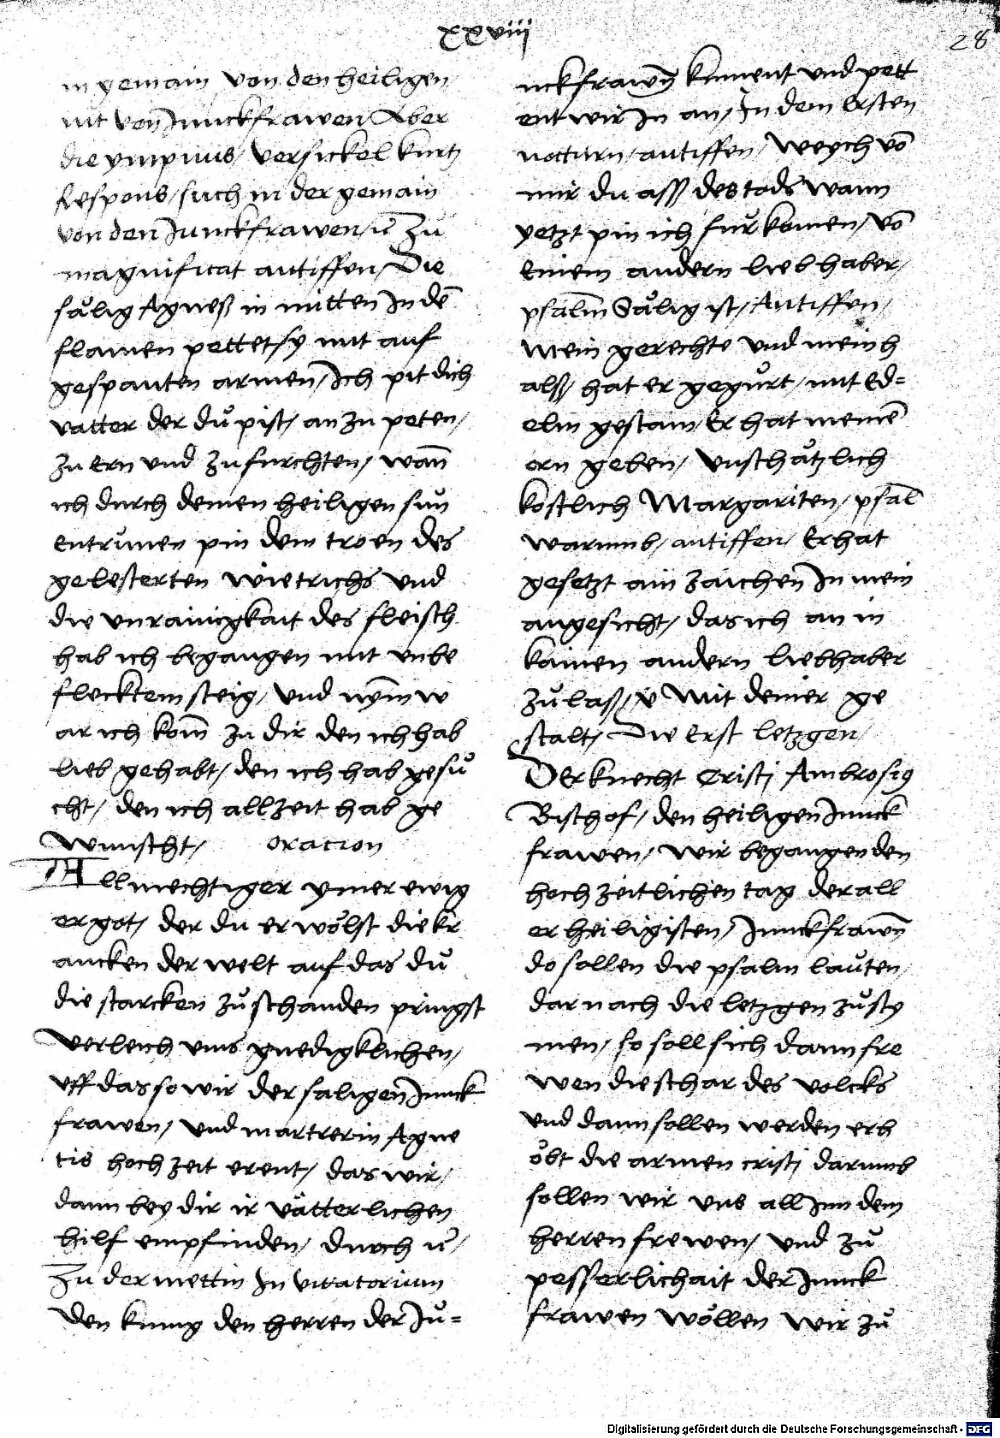 xxviii
28
in gemain von den heiligen
nit von Junckfrawen Aber
die ympnus / versickel kurtz
Respons / such in der gemain
von den Junckfrawen / u̅ Zů
magnificat antiffen / Die
sålig Agneß in mitten in de̅
flamen pettet sy mit auf
gespanten armen / Ich pit dich
vatter der du̇ pist / an zu peten /
zu Ern und zu furchten / wan̅
ich durch deinen heiligen sun
Entrunen pin dem troen des
gelesterten wietrichs und
die unrainigkait des fleisch
hab ich begangen mit unbe
flecktem steig / und nym̅ w
ar ich kom̅ zu dir den ich hab
lieb gehabt / den ich hab gesů
cht / den ich allzeit hab ge
wunscht / oracion
Allmechtiger ymer ewig
er got / der du erwölst die kr
ancken der welt auf das du̇
die starcken zů schanden pringst
verleich uns gnedigklichen /
uff das so wir der saligen Junck
frawen / und martrerin Agne
tis hochzeit erent / das wir /
dann bey dir ir våtterlichen
hilf empfinden / durch u̅ /
Zu der mettin In vitatorium
Den kunig den herren der Ju̇=
nckfrawn̅ kument und pett
ent wir In an / In dem Ersten
notturn / antiffen / Weych vo̅
mir du ass des tods wann
yetzt pin ich fur komen / vo̅
Einem andern lieb haber /
psalm̅ Sålig ist / Antiffen /
Mein gerechte und mein h
alß / hat er gegurt / mit Ed=
elm gestain / Er hat meine̅
orn geben / unschåtzlich
kostlich Margariten / psal̅
warumb / antiffen / Er hat
gesetzt ain zaichen in mein
angesicht / das ich an in
kainen andern liebhaber
zů lass / v̅ Mit deiner ge
stalt / Die Erst letzgen /
Der knecht Cristi Ambrosi9
Bischof / den heiligen Junck
frawen / wir begangen den
hochzeitlichen tag der all
er heiligisten / Junckfrawn̅
do sollen die psalm lauten /
dar nach die letzgen zů sty
men / so soll sich dann fre
wen die schar des volcks
und dann sollen werden erh
öbt die armen cristi darumb
sollen wir uns all Inn dem
herren frewen / und zů
pesserlichait der Junck
frawen wöllen wir zů
Digitalisierung gefördert durch die Deutsche Forschungsgemeinschaft - DFG